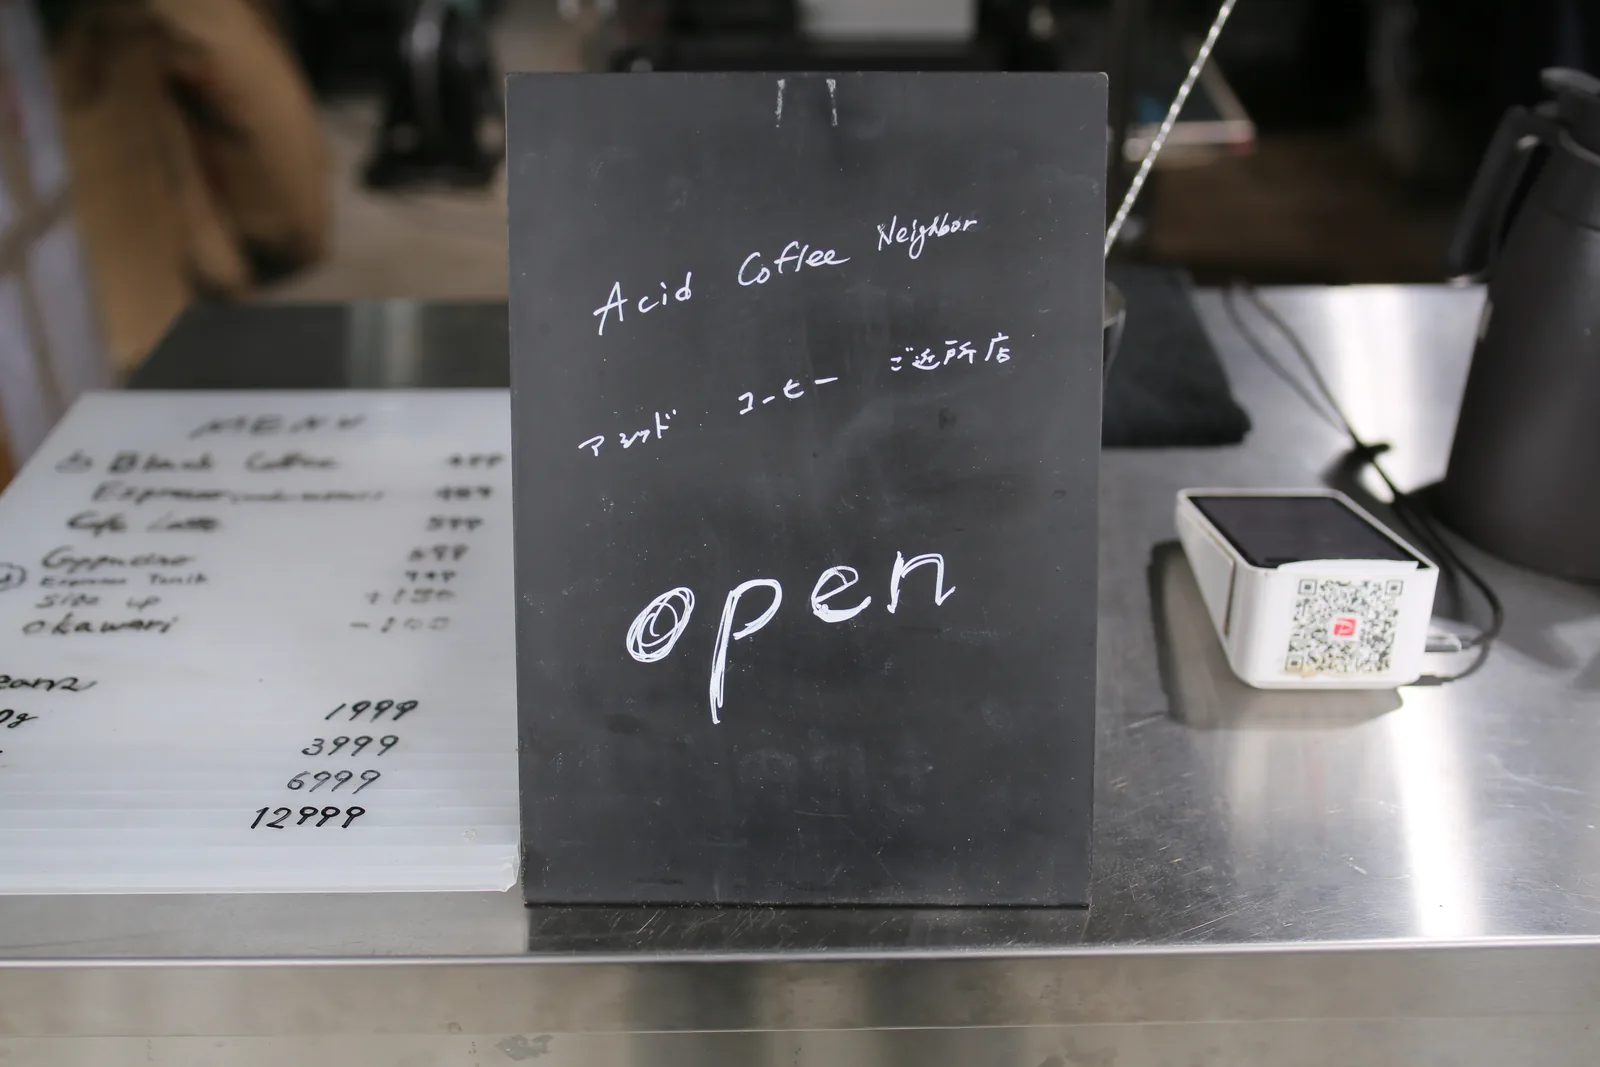 Acid Coffee Neighbor
アシッド コーヒー ご近所店
open
MENU
Black Coffee
Espresso
Cafe Latte 599
Espresso Tonik
Size up +150
Okawari -100
1999
3999
6999
12999